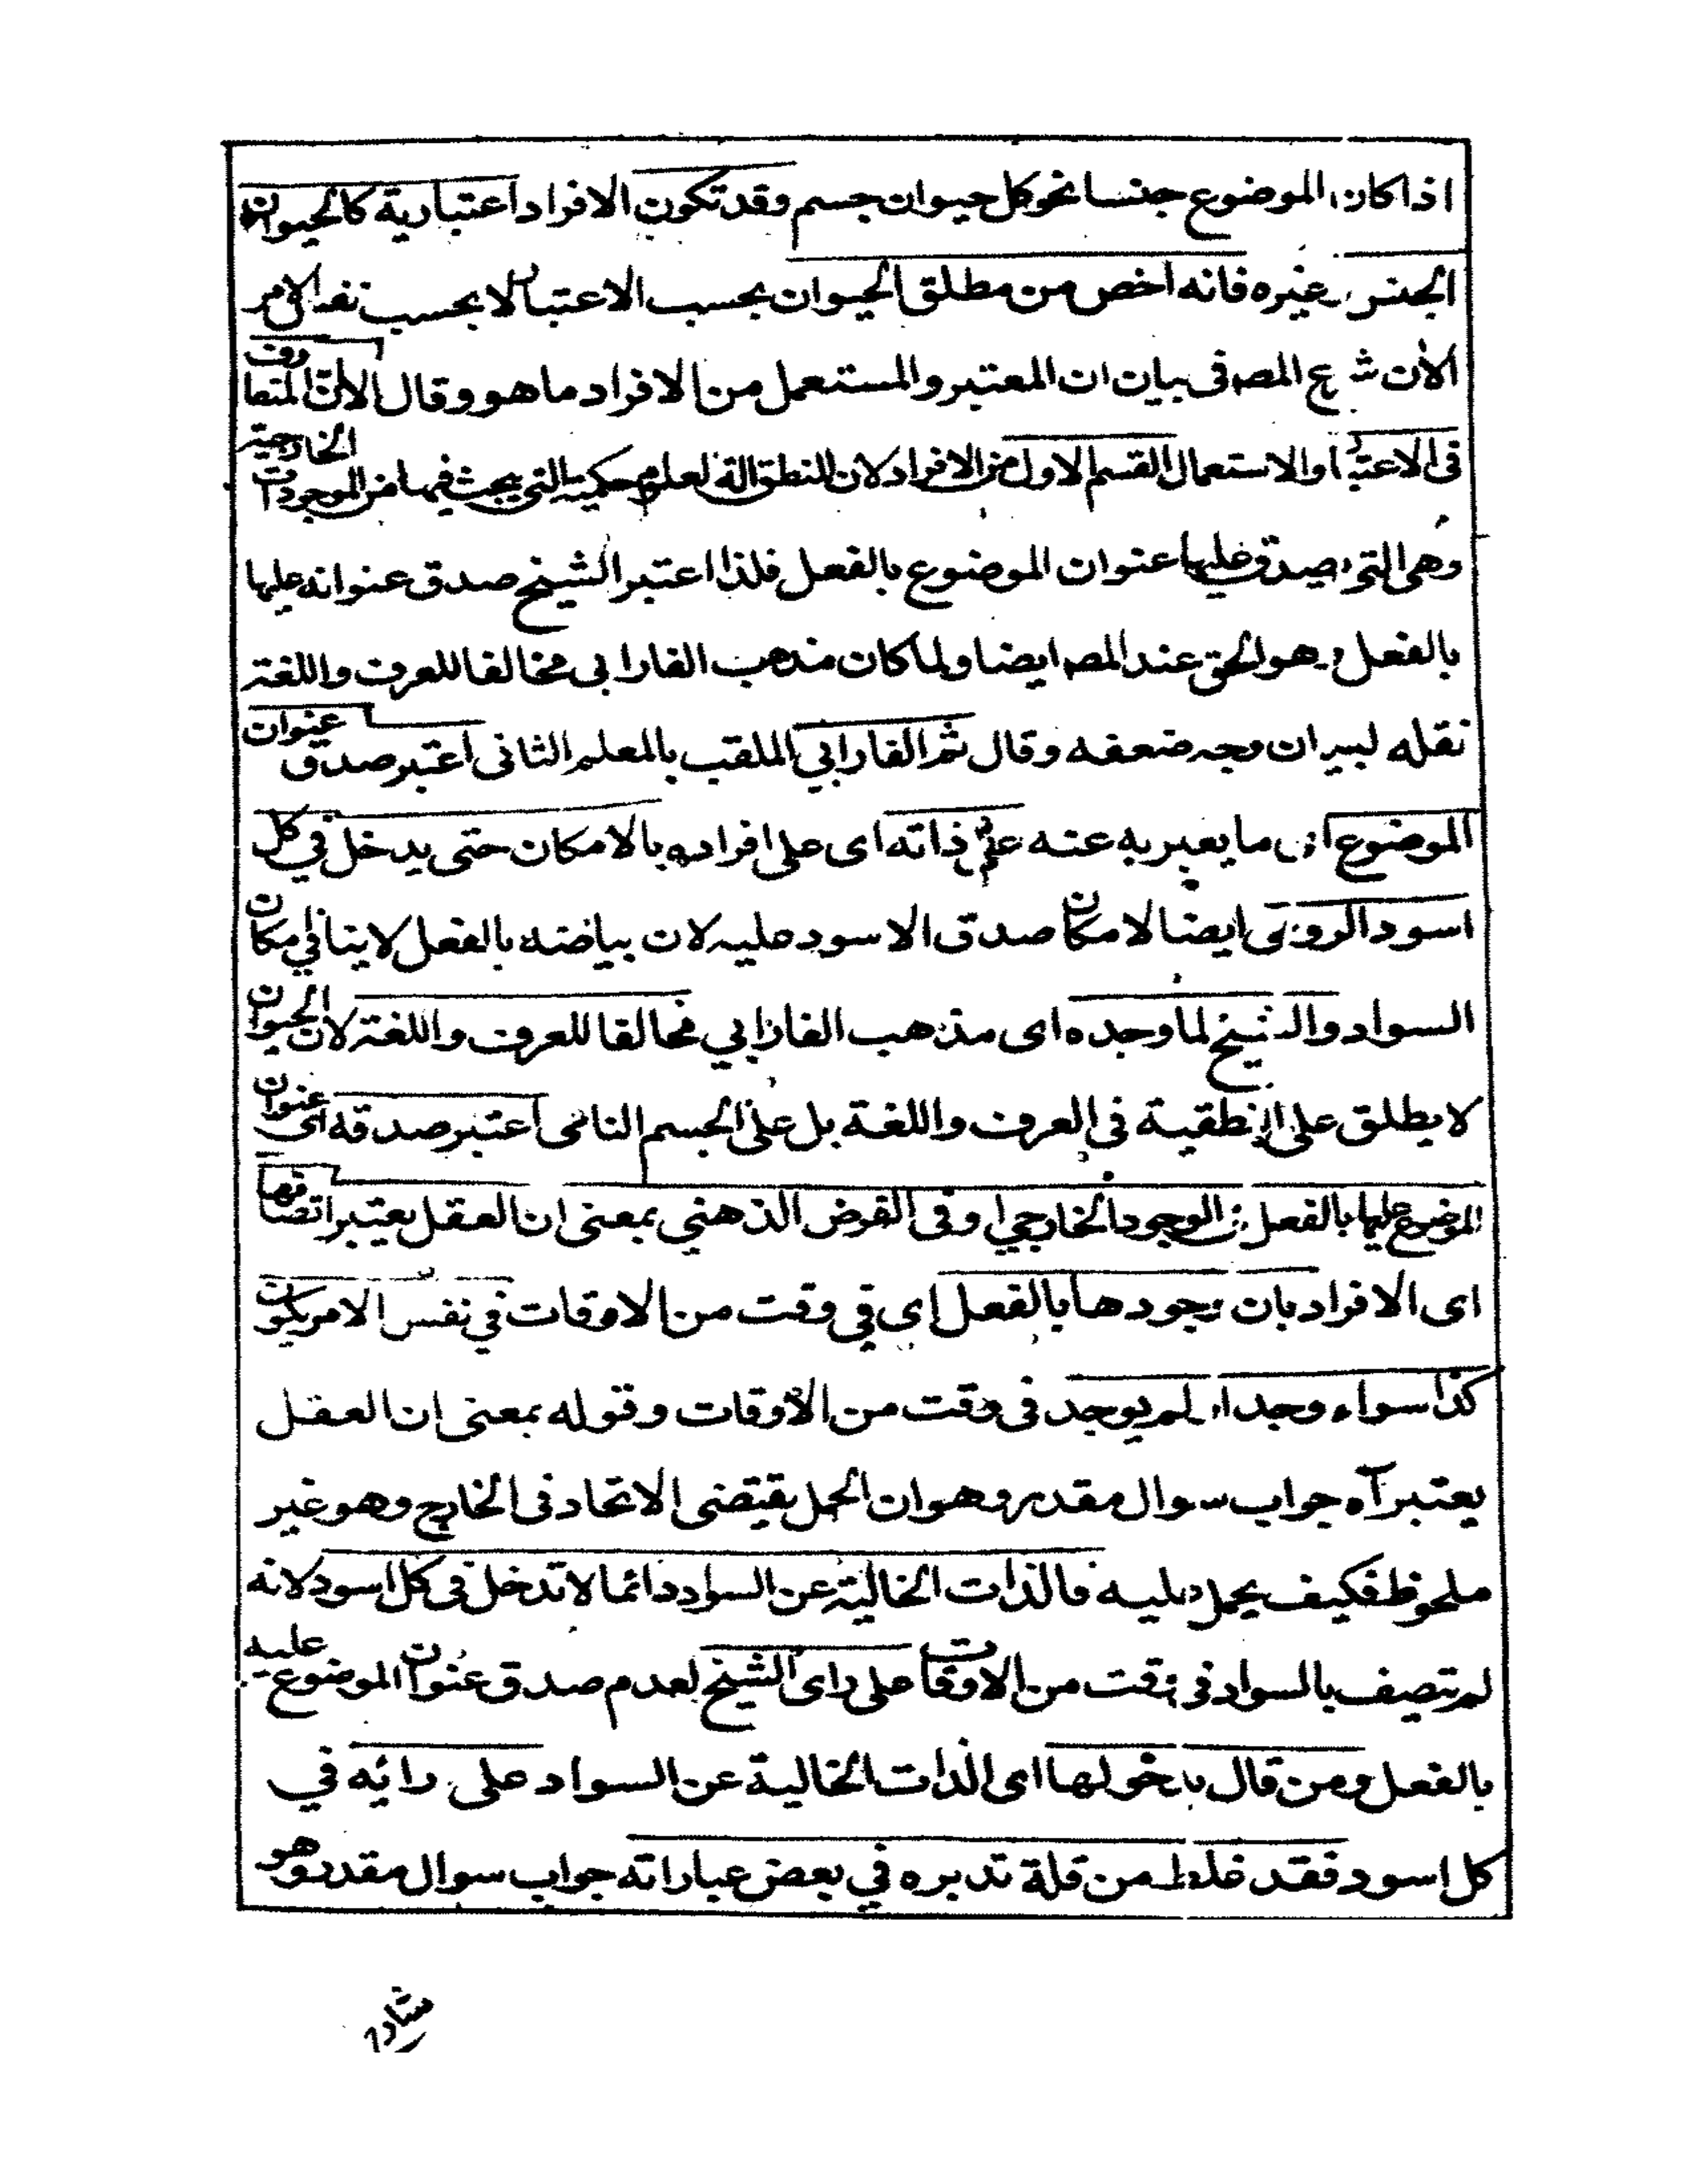 اذا كان الموضوع جنسا نحو كل حيوان جسم وقد تكون الافراد اعتبارية كالحيوان
الجنس غيره فانه اخص من مطلق الحيوان بحسب الاعتبار لا بحسب نفس الامر
الان شرع المصـ فى بيان ان المعتبر والمستعمل من الافراد ما هو وقال الا ان المتعارف
فى الاعتبار والاستعمال القسم الاول من الافراد لان المنطق الة لعلوم حكمية التى يبحث فيها من الموجودات الخارجية
وهى التى يصدق عليها عنوان الموضوع بالفعل فلذا اعتبر الشيخ صدق عنوانه عليها
بالفعل وهو الحق عند المصـ ايضا ولما كان مذهب الفارابى مخالفا للعرف واللغة
نقله لبيان وجه ضعفه وقال ثم الفارابي الملقب بالمعلم الثانى اعتبر صدق عنوان
الموضوع اى ما يعبر به عنه على ذاته اى على افراده بالامكان حتى يدخل في كل
اسود الرومى ايضا لامكان صدق الاسود عليه لان بياضه بالفعل لا ينافي امكان
السواد والشيخ لما وجده اى مذهب الفارابي مخالفا للعرف واللغة لان الحيوان
لا يطلق على النطقية فى العرف واللغة بل على الجسم النامى اعتبر صدقه اى عنوان
الموضوع عليها بالفعل فى الوجود الخارجي او فى الفرض الذهني بمعنى ان العقل يعتبر اتصافها
اى الافراد بان وجودها بالفعل اى في وقت من الاوقات في نفس الامر يكون
كذا سواء وجد او لم يوجد فى وقت من الاوقات وقوله بمعنى ان العقل
يعتبر آه جواب سوال مقدر وهو ان الحمل يقتضى الاتحاد فى الخارج وهو غير
ملحوظ فكيف يحمل عليه فالذات الخالية عن السواد دائما لا تدخل فى كل اسود لانه
لم تتصف بالسواد فى وقت من الاوقات على راى الشيخ لعدم صدق عنوان الموضوع عليه
بالفعل ومن قال بدخولها اى الذات الخالية عن السواد على رائه في
كل اسود فقد غلط من قلة تدبره في بعض عباراته جواب سوال مقدر وهو